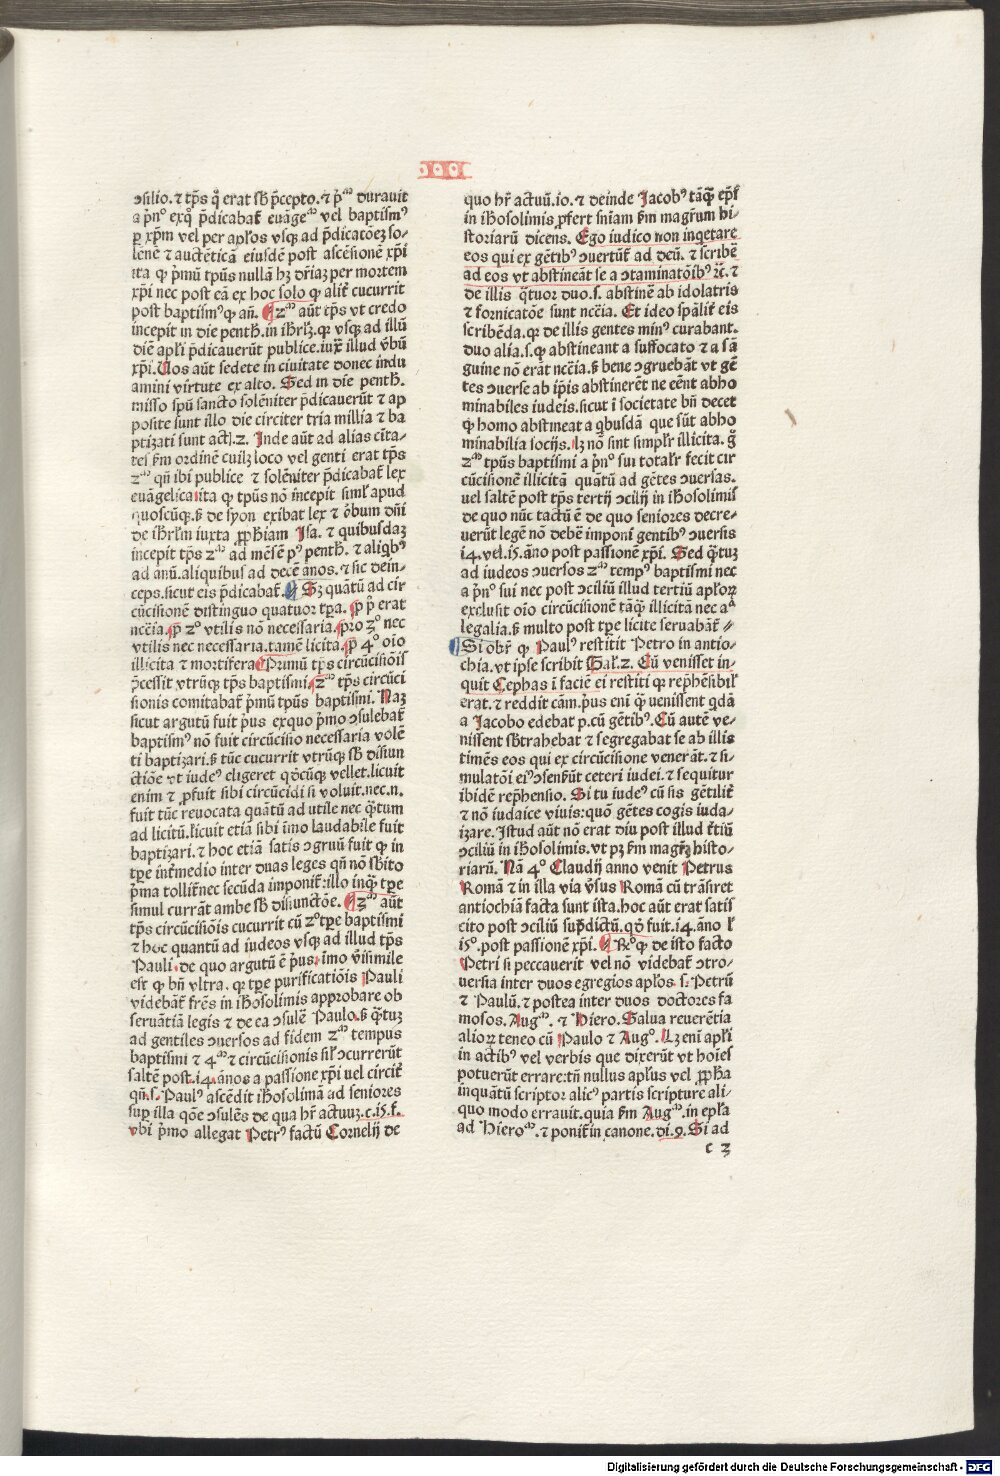 ɔsilio. ⁊ tp̄s q̊ erat sb̄ p̄cepto. ⁊ p̄ᵐ durauit
a p̄nᵒ exq̊ p̄dicabat̄ euāgeᵐ vel baptismꝰ
ꝑ xp̄m vel per apl̄os vsqꝫ ad p̄dicatōeꝫ so⸗
lēne ⁊ auctēticā eiusdē post ascēsionē xp̄i
ita ꝙ p̄mū tp̄us nullā hꝫ dr̄iaꝫ per mortem
xp̄i nec post eā ex hoc solo ꝙ alit̄ cucurrit
post baptismꝰ ꝙ an̄. ¶ 2ᵐ aūt tp̄s vt credo
incepit in die penth̄. in ihr̄lꝫ. qꝛ vsqꝫ ad illū
diē apl̄i p̄dicauerūt publice. iux̄ illud v̄bū
xp̄i. Uos aūt sedete in ciuitate donec indu
amini virtute ex alto. Sed in diē penth̄.
misso sp̄u sancto solēniter p̄dicauerūt ⁊ ap
posite sunt illo die circiter tria millia ⁊ ba
ptizati sunt act̄. 2. Inde aūt ad alias cīta⸗
tes s̄m ordinē cuilꝫ loco vel genti erat tp̄s
2ᵐ qn̄ ibi publice ⁊ solēniter p̄dicabat̄ lex
euāgelica ita ꝙ tp̄us nō incepit siml̄ apud
quoscūqꝫ. s̄ de syon exibat lex ⁊ v̄bum dn̄i
de ihr̄lm iuxta ꝓph̄iam Isa. ⁊ quibusdaꝫ
incepit tp̄s 2ᵐ ad mēsē pꝰ penth̄. ⁊ aliqb̄ꝰ
ad anū. aliquibus ad decē anos. ⁊ sic dein⸗
ceps. sicut eis p̄dicabat̄. ¶ Sꝫ quātū ad cir
cūcisionē distinguo quatuor tꝑa. ꝓ p̄ erat
ncc̄ia. ꝓ 2ᵒ vtilis nō necessaria. pro 3ᵒ nec
vtilis nec necessaria. tamē licita. ꝓ 4ᵒ oīo
illicita ⁊ mortifera Primū tp̄s circūcisiōis
p̄cessit vtrūqꝫ tp̄s baptismi. 2ᵐ tp̄s circūci
sionis comitabat̄ p̄mū tp̄us baptismi. Naꝫ
sicut argutū fuit p̄us exquo p̄mo ɔsulebat̄
baptismꝰ nō fuit circūcisio necessaria volē
ti baptizari. s̄ tūc cucurrit vtrūqꝫ sb̄ disiun
ctiōe vt iudeꝰ eligeret qd̄cūqꝫ vellet. licuit
enim ⁊ ꝓfuit sibi circūcidi si voluit. nec. n.
fuit tūc reuocata quātū ad utile nec q̄tum
ad licitū. licuit etiā sibi imo laudabile fuit
baptizari. ⁊ hoc etiā satis ɔgruū fuit ꝙ in
tꝑe int̄medio inter duas leges qn̄ nō sb̄ito
p̄ma tollit̄ nec secūda imponit̄: illo inq̄ꝫ tꝑe
simul currāt ambe sb̄ disiunctōe. ¶ 3ᵐ aūt
tp̄s circūcisiōis cucurrit cū 2ᵒ tꝑe baptismi
⁊ hoc quantū ad iudeos vsqꝫ ad illud tp̄s
Pauli. de quo argutū ē p̄us. imo v̄isimile
est ꝙ bn̄ vltra. qꝛ tꝑe purificatiōis Pauli
videbāt̄ frēs in ihosolimis approbare ob
seruātiā legis ⁊ de ea ɔsulē Paulo. s̄ q̄tuꝫ
ad gentiles ɔuersos ad fidem 2ᵐ tempus
baptismi ⁊ 4ᵐ ⁊ circūcisionis sil̄ ɔcurrerūt
saltē post. i4. ānos a passione xp̄i uel circit̄
qn̄. s. Paulꝰ ascēdit ihosolimā ad seniores
suꝑ illa qōe ɔsulēs de qua hr̄ actuuꝫ. c. i5. s.
vbi p̄mo allegat Petrꝰ factū Cornelij de
quo hr̄ actuū. io. ⁊ deinde Jacobꝰ tāq̄ꝫ ep̄s
in ihosolimis ꝓfert sn̄iam s̄m magr̄um hi⸗
storiarū dicens. Ego iudico non inqetare
eos qui ex gētibꝰ ɔuertūt̄ ad deū. ⁊ scribē
ad eos vt abstineāt se a ɔtaminatōibꝰ ⁊c̄. ⁊
de illis q̄tuor duo. s. abstinē ab idolatris
⁊ fornicatōe sunt ncc̄ia. Et ideo sp̄alit̄ eis
scribēda. qꝛ de illis gentes minꝰ curabant.
duo alia. s. ꝙ abstineant a suffocato ⁊ a sā
guine nō erāt ncc̄ia. s̄ bene ɔgruebāt vt gē
tes ɔuerse ab ip̄is abstinerēt ne eēnt abho
minabiles iudeis. sicut ī societate bn̄ decet
ꝙ homo abstineat a qb̄usdā que sūt abho
minabilia socijs. lꝫ nō sint simpl̄r illicita. g̊
2ᵐ tp̄us baptismi a p̄nᵒ sui total̄r fecit cir
cūcisionē illicitā quātū ad gētes ɔuersas.
vel saltē post tp̄s tertij ɔcilij in ihosolimis
de quo nūc tactū ē de quo seniores decre⸗
uerūt legē nō debē imponi gentibꝰ ɔuersis
i4. vel. i5. āno post passionē xp̄i. Sed q̄tuꝫ
ad iudeos ɔuersos 2ᵐ tempꝰ baptismi nec
a p̄nᵒ sui nec post ɔciliū illud tertiū apl̄oꝝ
exclusit oīo circūcisionē tāqꝫ illicitā nec aᵃ
legalia. s̄ multo post tꝑe licite seruabāt̄ ⸗
Si obr̄ ꝙ Paulꝰ restitit Petro in antio⸗
chia. vt ipse scribit Gal̄. 2. Cū venisset in⸗
quit Cephas ī faciē ei restiti qꝛ rep̄hēsibil̄
erat. ⁊ reddit cām. p̄us eni ꝙ venissent qdā
a Jacobo edebat p. cū gētibꝰ. Cū autē ve⸗
nissent sb̄trahebat ⁊ segregabat se ab illis
timēs eos qui ex circūcisione venerāt. ⁊ si⸗
mulatōi eiꝰ ɔsens̄ūt ceteri iudei. ⁊ sequitur
ibidē rep̄hensio. Si tu iudeꝰ cū sis gētilit̄
⁊ nō iudaice viuis: quō gētes cogis iuda⸗
izare. Istud aūt nō erat diu post illud t̄tiū
ɔciliū in ihosolimis. vt pꝫ s̄m magr̄ꝫ histo⸗
riarū. Nā 4ᵒ Claudij anno venit Petrus
Romā ⁊ in illa via v̄sus Romā cū trāsiret
antiochiā facta sunt ista. hoc aūt erat satis
cito post ɔciliū sup̄dictū. qd̄ fuit. i4. āno l̄
i5ᵒ. post passionē xp̄i. ¶ R̄ᵒ ꝙ de isto facto
Petri si peccauerit vel nō videbat̄ ɔtro⸗
uersia inter duos egregios apl̄os. s. Petrū
⁊ Paulū. ⁊ postea inter duos doctores fa
mosos. Augᵐ. ⁊ Hiero. Salua reuerētia
alioꝝ teneo cū Paulo ⁊ Augᵒ. Lꝫ eni apl̄i
in actibꝰ vel verbis que dixerūt vt hoīes
potuerūt errare: tn̄ nullus apl̄us vel ꝓph̄a
inquātū scriptor alicꝰ partis scripture ali⸗
quo modo errauit. quia s̄m Augᵐ. in epl̄a
ad Hieroᵐ. ⁊ ponit̄ in canone. di. 9. Si ad
c 3
Digitalisierung gefördert durch die Deutsche Forschungsgemeinschaft - DFG